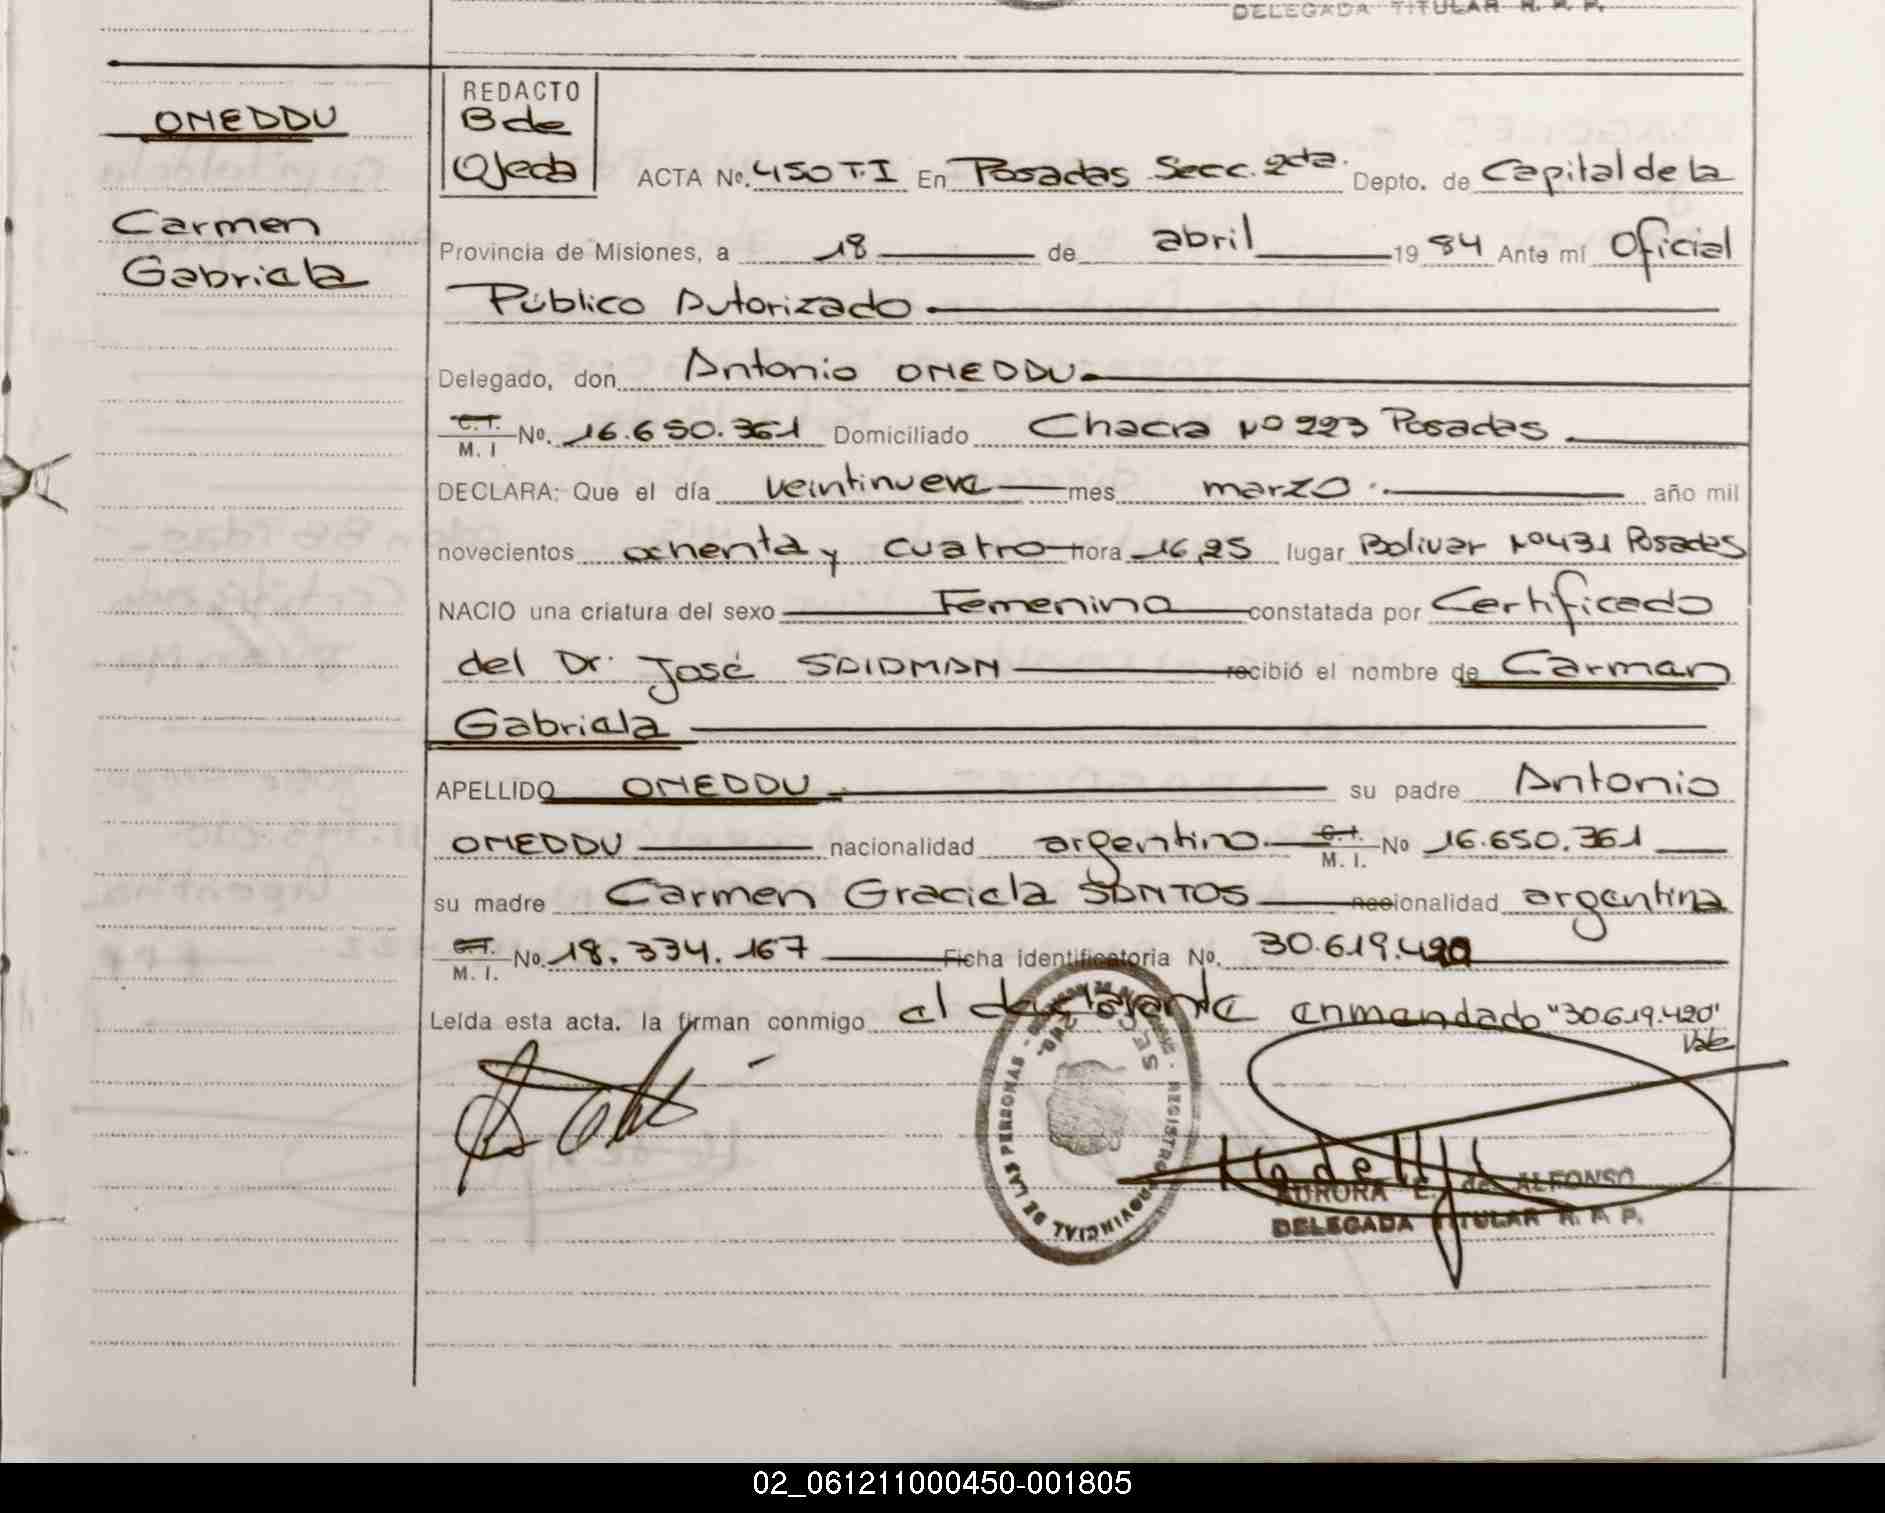 DELEGADA TITULAR R. P. P.
ONEDDU
Carmen
Gabriela
REDACTO
B de
Ojeda
ACTA Nº. 450 T.I En Posadas Secc. 2da. Depto. de Capital de la
Provincia de Misiones, a 18 de abril 1984 Ante mí Oficial
Público Autorizado
Delegado, don Antonio ONEDDU
C.I. M. I Nº. 16.650.361 Domiciliado Chacra Nº 223 Posadas
DECLARA: Que el día veintinueve mes marzo año mil
novecientos ochenta y cuatro hora 16,25 lugar Bolivar Nº 431 Posadas
NACIO una criatura del sexo Femenino constatada por Certificado
del Dr. José SAIDMAN recibió el nombre de Carmen
Gabriela
APELLIDO ONEDDU su padre Antonio
ONEDDU nacionalidad argentino C.I. M. I. Nº 16.650.361
su madre Carmen Graciela SANTOS nacionalidad argentina
C.I. M. I. Nº. 18.334.167 Ficha identificatoria Nº. 30.619.420
Leída esta acta, la firman conmigo el declarante enmendado "30.619.420"
Vale
REGISTRO PROVINCIAL DE LAS PERSONAS
AURORA E. de ALFONSO
DELEGADA TITULAR R. P. P.
02_061211000450-001805